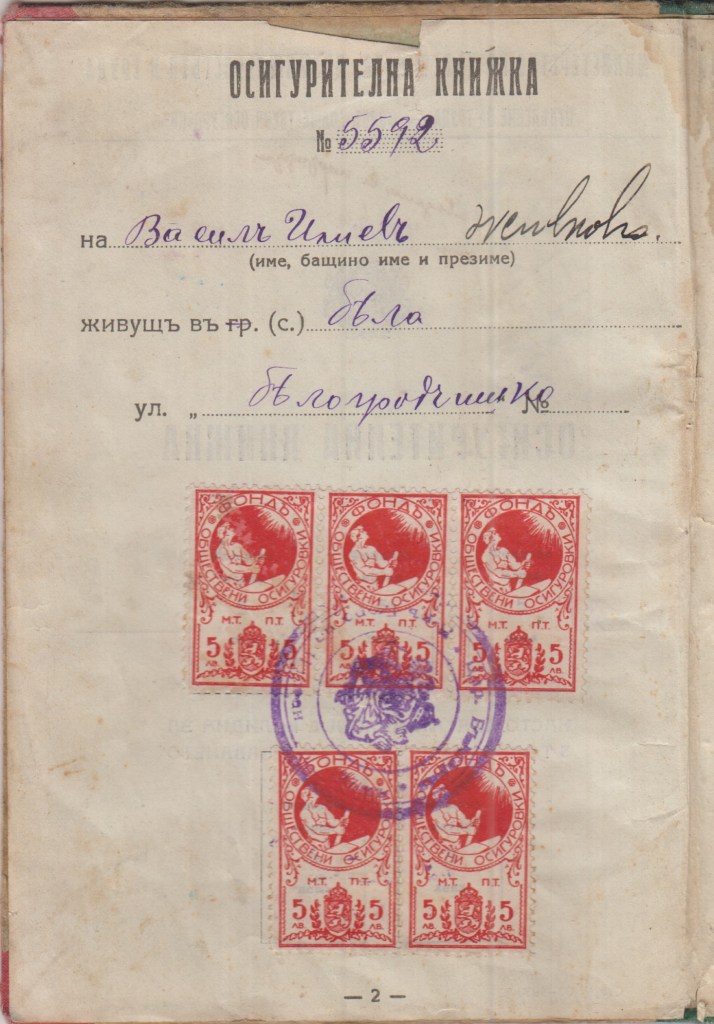 ОСИГУРИТЕЛНА КНИЖКА
№ 5592
на Василъ Илиевъ Живковъ.
(име, бащино име и презиме)
живущъ въ гр. (с.) бѣла
ул. „ бѣлоградчишка №
ФОНДЪ ОБЩЕСТВЕНИ ОСИГУРОВКИ
М.Т. П.Т.
5 5
ЛВ. ЛВ.
ФОНДЪ ОБЩЕСТВЕНИ ОСИГУРОВКИ
М.Т. П.Т.
5 5
ЛВ. ЛВ.
ФОНДЪ ОБЩЕСТВЕНИ ОСИГУРОВКИ
М.Т. П.Т.
5 5
ЛВ. ЛВ.
ФОНДЪ ОБЩЕСТВЕНИ ОСИГУРОВКИ
М.Т. П.Т.
5 5
ЛВ. ЛВ.
ФОНДЪ ОБЩЕСТВЕНИ ОСИГУРОВКИ
М.Т. П.Т.
5 5
ЛВ. ЛВ.
— 2 —